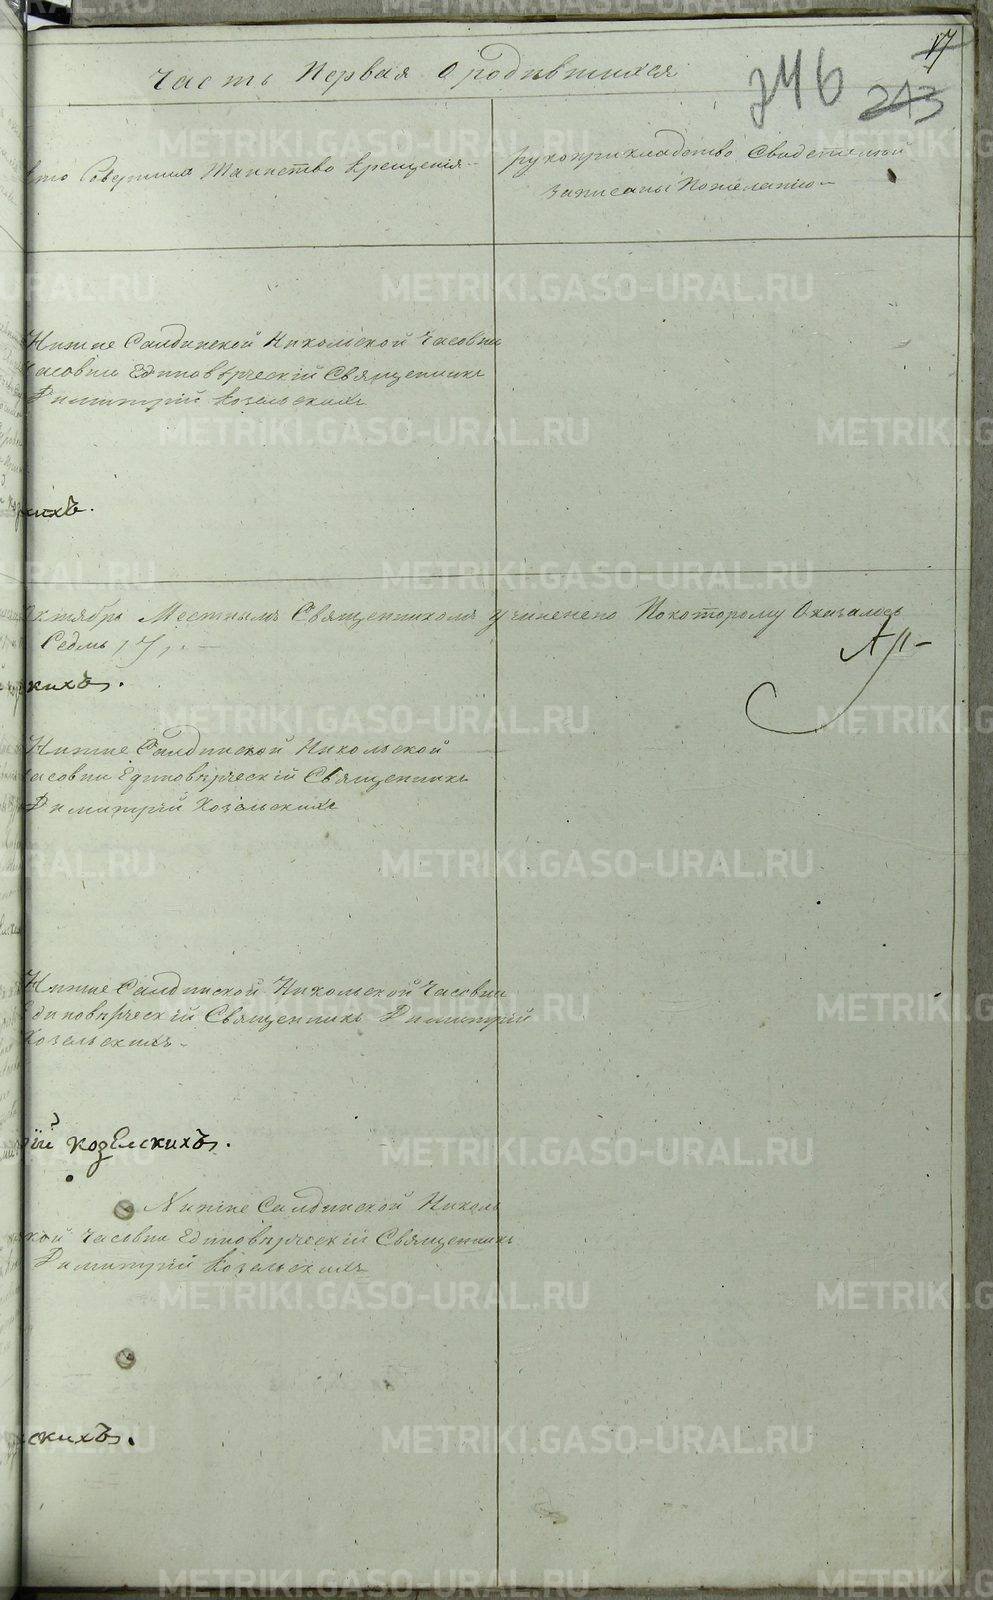 17
Часть Первая О родившихся
246
243
кто Совершилъ Таинство крещенія
рукоприкладство Свидетелей
записаны По желанію
Нижне Салдинской Никольской часовни
часовни Единовѣрческій Священникъ
Димитрій Козельскихъ
кихъ.
Октябрь Местнымъ Священникомъ учиненено По которому Оказалось
Седмь /7/.
кихъ.
Нижне Салдинской Никольской
часовни Единовѣрческій Священникъ
Димитрій Козельскихъ
Нижне Салдинской Никольской Часовни
Единовѣрческій Священникъ Димитрій
Козельскихъ
ій козелскихъ.
Нижне Салдинской Николь
кой часовни Единовѣрческій Священникъ
Димитрій Козельскихъ
скихъ.
METRIKI.GASO-URAL.RU